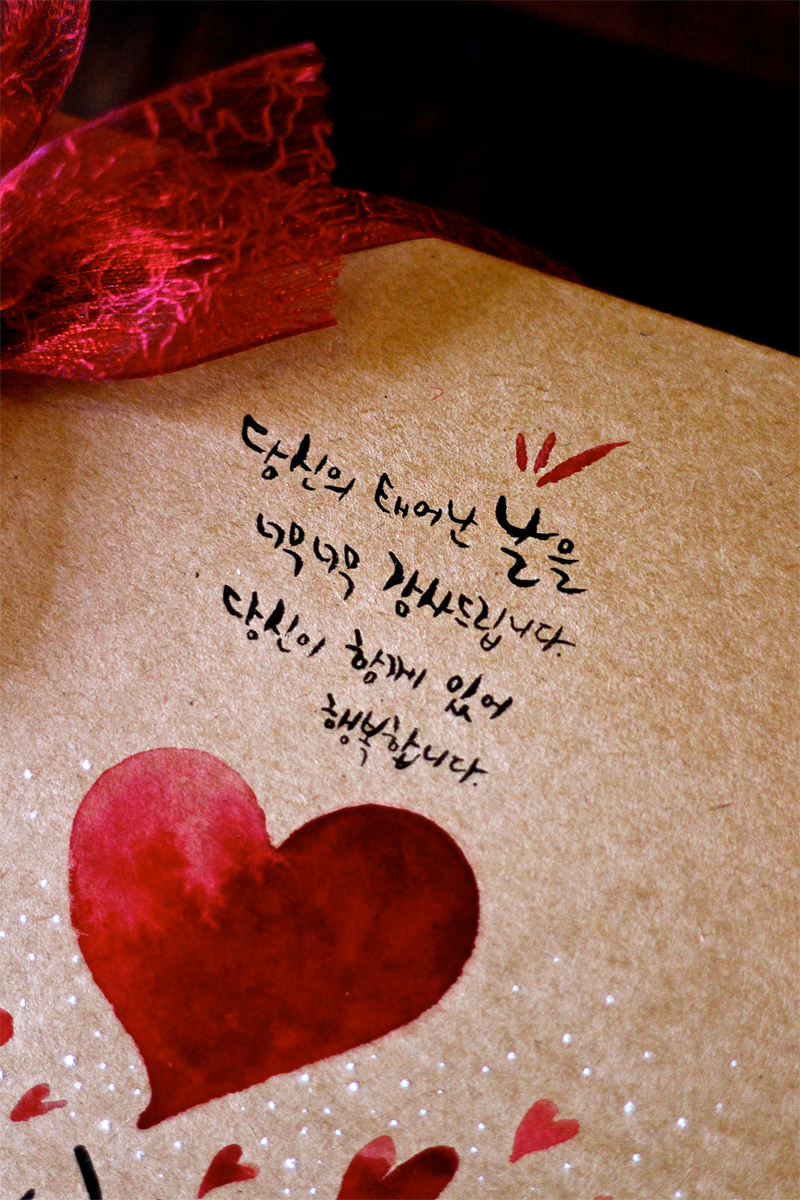 당신의 태어난 날을
너무너무 감사드립니다
당신이 함께 있어
행복합니다